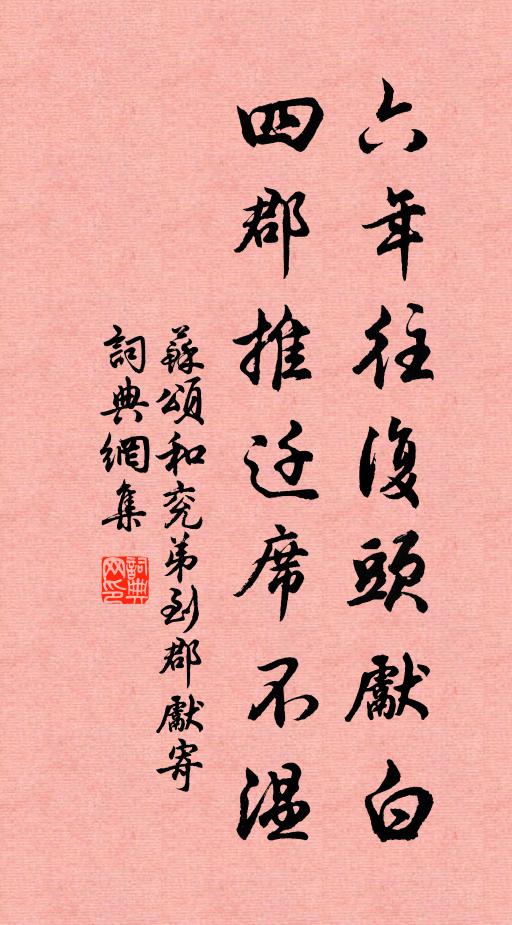 六年往復頭獻白
四郡推迁席不温
蘇頌和兖弟到郡獻寄
詞典網集
詞典网印